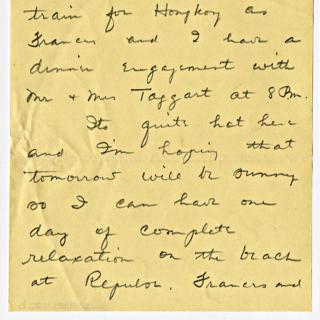 train for Hongkoy as
Frances and I have a
dinner engagement with
Mr & Mrs Taggart at 8 Pm.
Its quite hot here
and I'm hoping that
tomorrow will be sunny
so I can have one
day of complete
relaxation on the beach
at Repulse. Frances and